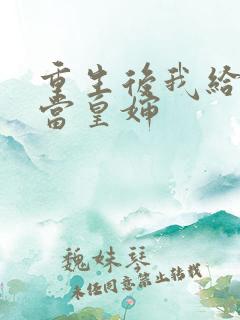 重生後我給
當皇嬸
魏妹琴
未经同意禁止转载